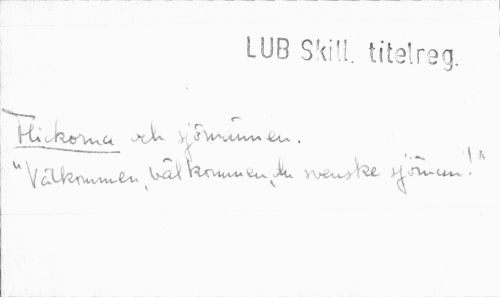 LUB Skill. titelreg.
Flickorna och sjömännen.
"Välkommen, välkommen, du svenske sjöman!"